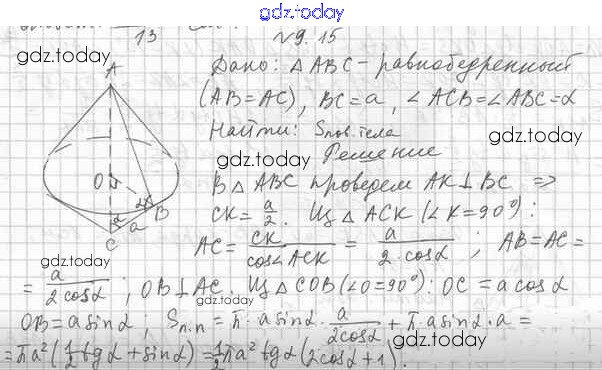 gdz.today
13
№9.15
gdz.today
gdz.today
A
Дано: △ABC – равнобедренный
(AB=AC), BC=a, ∠ACB=∠ABC=α
Найти: Sпов. тела
gdz.today
gdz.today
Решение
O
α
B
α
a
C
В △ABC проведем AK⊥BC ⇒
gdz.today
CK = a/2. Из △ACK (∠K=90°):
AC = CK/cos∠ACK = a/(2·cosα); AB=AC=
gdz.today
gdz.today
= a/(2cosα); OB⊥AC. Из △COB (∠O=90°): OC = a cosα
gdz.today
OB = a sinα; Sп.п = π·a sinα·a/(2cosα) + π·a sinα·a =
= πa²(1/2 tgα + sinα) = 1/2 πa² tgα (2cosα+1).
gdz.today
gdz.today